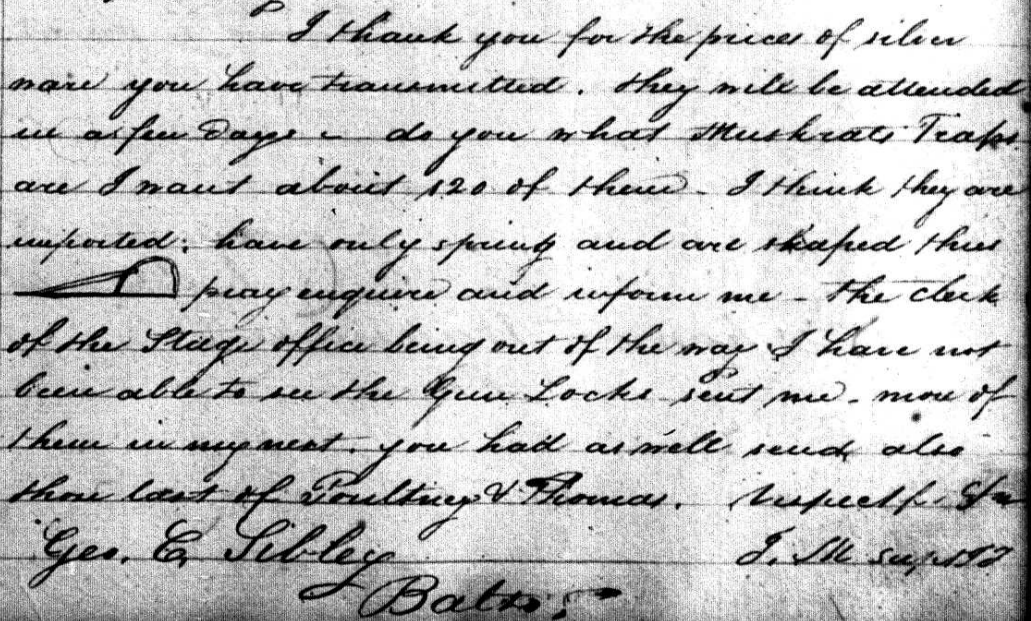 I thank you for the prices of silver
ware you have transmitted. they will be attended
in a few days - do you what Muskrats Traps
are I want about 120 of them - I think they are
imported; have only spring and are shaped thus
pray enquire and inform me - the clerk
of the Stage office being out of the way I have not
been able to see the Gun Locks sent me - more of
them in my next. you had as well send also
those last of Poultney & Thomas. respectf
Geo. C. Sibley J. M
Balto.